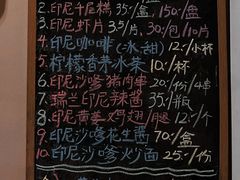 2.印尼千层糕 35/盒 150/盒
3.印尼虾片 35/ 30/包 10/片
4.印尼咖啡(冰、甜) 12/小杯
5.柠檬香茅冰茶 10/杯
6.印尼沙嗲猪肉串 20/份
7.瑞兰印尼辣酱 35/瓶
8.印尼黄姜鸡翅/腿 12/个
9.印尼沙嗲花生酱 70/份
10.印尼沙嗲炒面 25/份